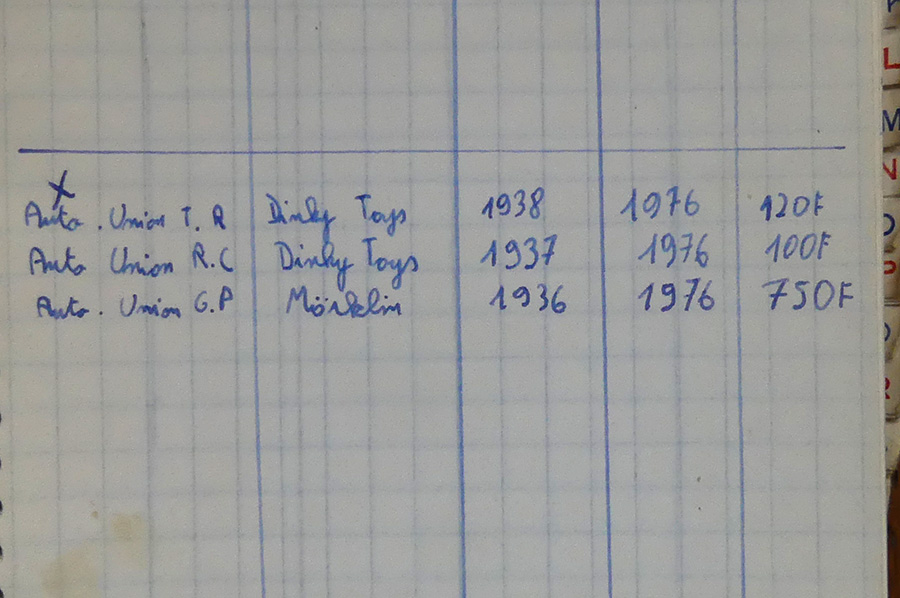 X
Auto. Union T. R Dinky Toys 1938 1976 120F
Auto Union R.C Dinky Toys 1937 1976 100F
Auto. Union G.P Märklin 1936 1976 750F
L
M
N
O
P
R